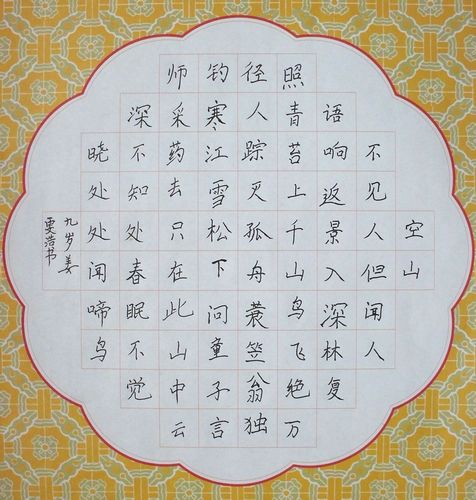 空山
不见人但闻人
语响返景入深林复
照青苔上千山鸟飞绝万
径人踪灭孤舟蓑笠翁独
钓寒江雪松下问童子言
师采药去只在此山中云
深不知处春眠不觉
晓处处闻啼鸟
九岁姜
浩书